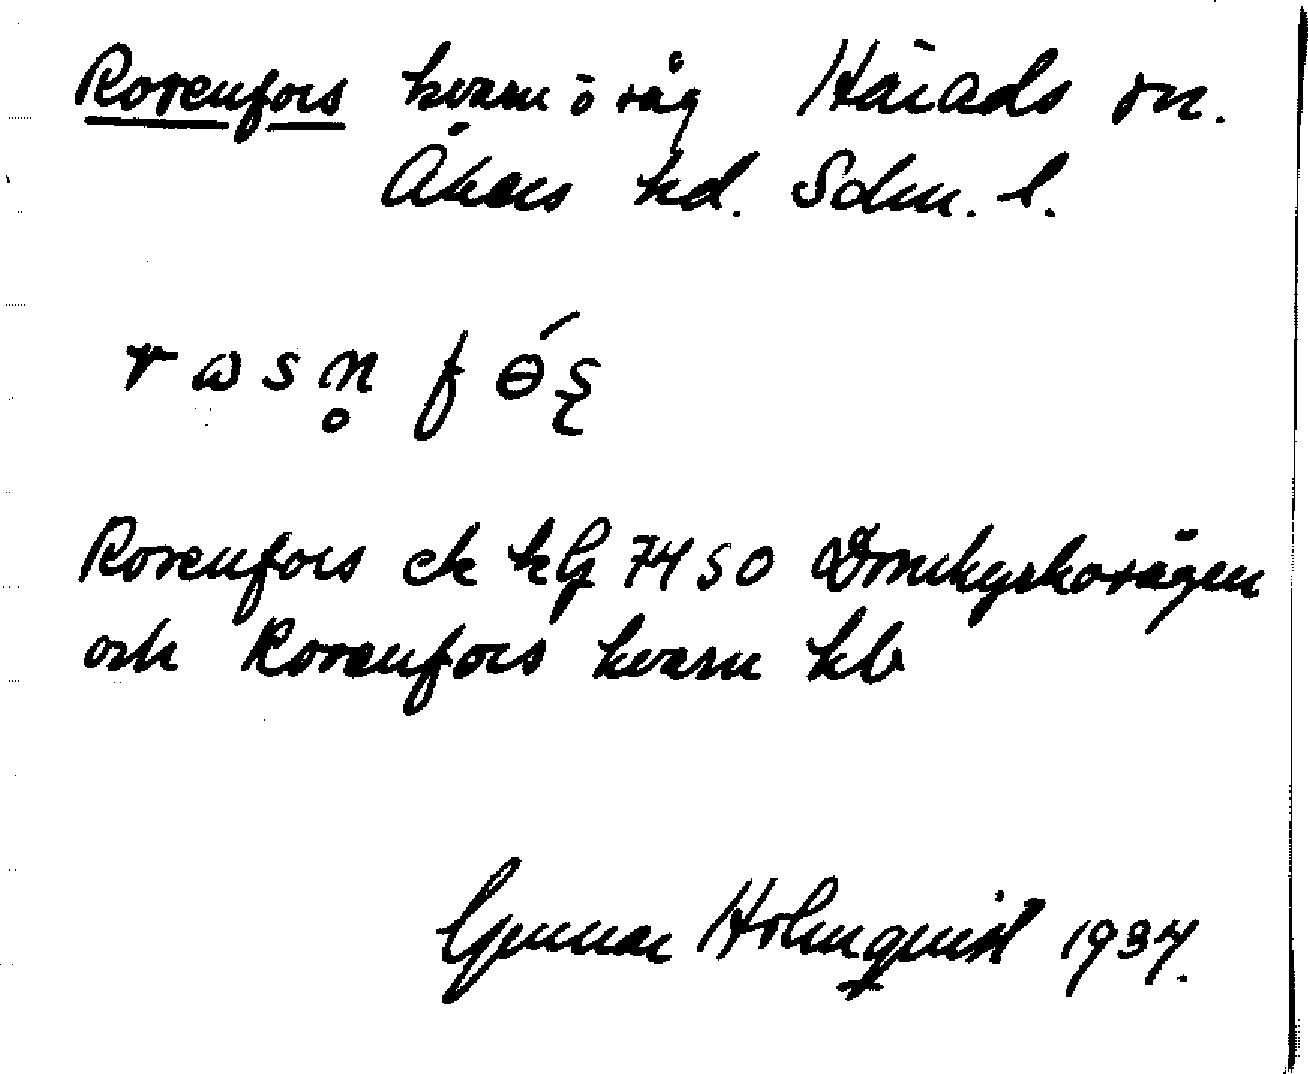 Rosenfors kvarn o såg Härads sn.
Åkers hd. Södm. l.
r ω s n̥ f ɵ́ ʂ
Rosenfors ek kG 7450 Domkyrkosågen
och Rosenfors kvarn kb
Gunnar Holmquist 1934.